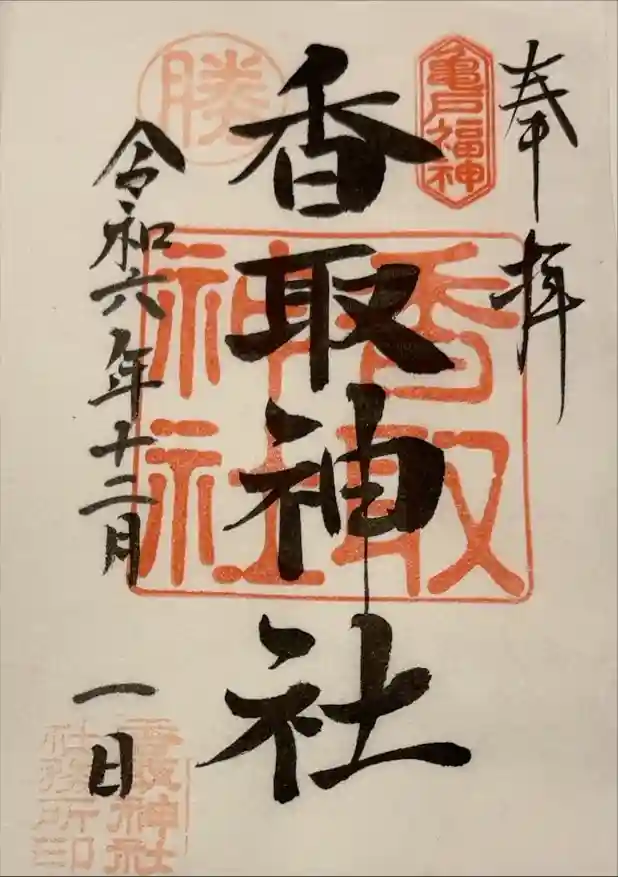 奉拝
亀戸福神
香取神社
香取神社
勝
令和六年十二月
一日
香取神社
社務所印